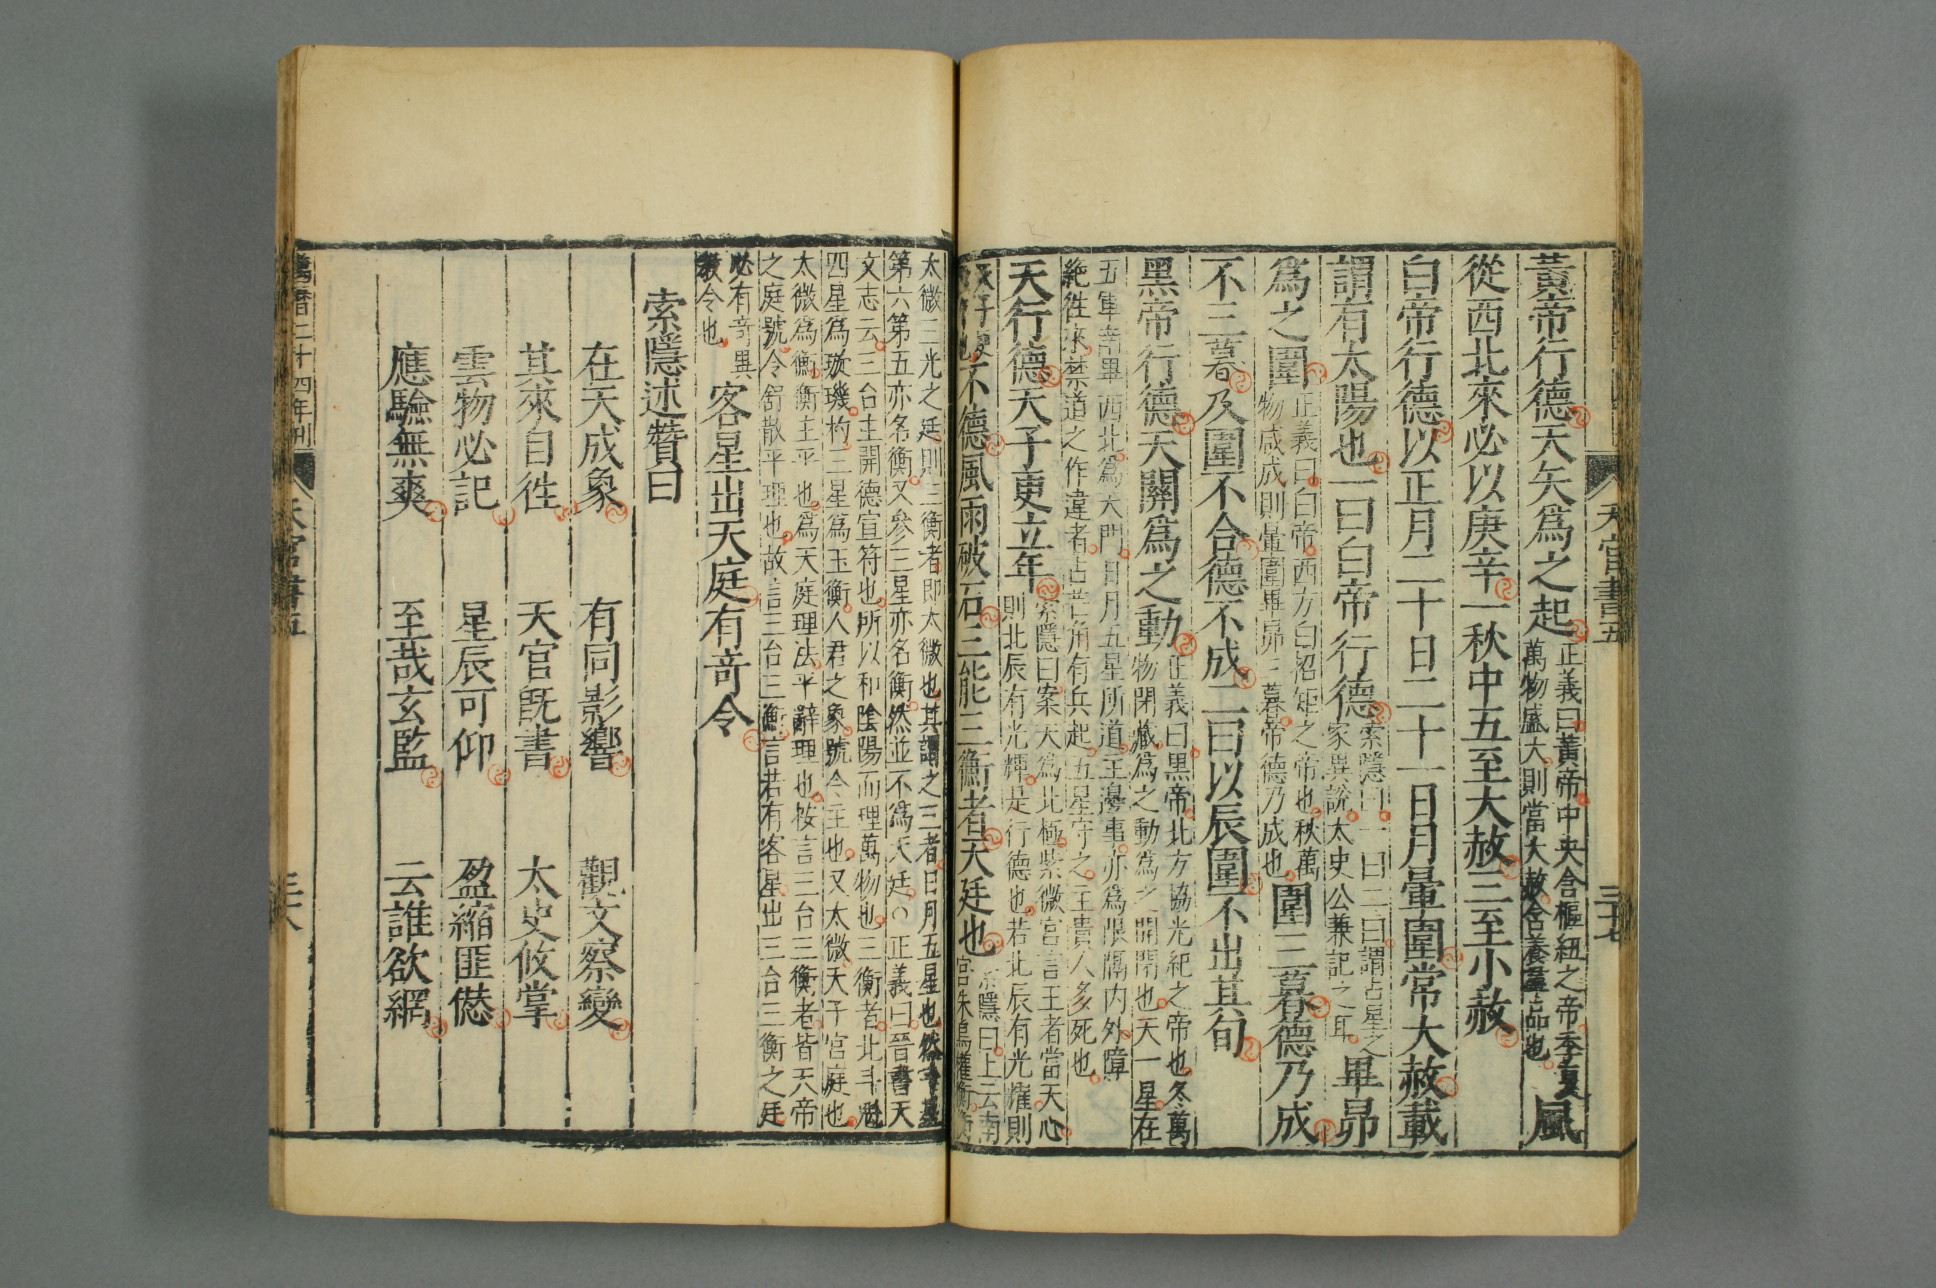 天官書五
三十七
黃帝行德天矢爲之起正義曰黃帝中央含樞紐之帝季夏萬物盛大則當大赦含養羣品也風
從西北來必以庚辛一秋中五至大赦三至小赦
白帝行德以正月二十日二十一日月暈圍常大赦載
謂有太陽也一曰白帝行德索隱曰一曰二曰謂占星之家異說太史公兼記之耳畢昴
爲之圍正義曰白帝西方白招矩之帝也秋萬物咸成則暈圍畢昴三暮帝德乃成也圍三暮德乃成
不三暮及圍不合德不成二曰以辰圍不出其旬
黑帝行德天關爲之動正義曰黑帝北方協光紀之帝也冬萬物閉藏爲之動爲之開閉也天一星在
五車南畢西北爲天門日月五星所道主邊事亦爲限隔內外障
絶徃來禁道之作違者占芒角有兵起五星守之主貴人多死也
天行德天子更立年索隱曰案天爲北極紫微宮言王者當天心則北辰有光輝是行德也若北辰有光燿則
不德風雨破石三能三衡者天廷也索隱曰上云南宮朱鳥權衡衡
太微三光之廷則三衡者即太微也其謂之三者日月五星也然
第六第五亦名衡又參三星亦名衡然並不爲天廷○正義曰晉書天
文志云三台主開德宣符也所以和陰陽而理萬物也三衡者北斗魁
四星爲璇璣杓三星爲玉衡人君之象號令主也又太微天子宮庭也
太微爲衡衡主平也爲天庭理法平辭理也按言三台三衡者皆天帝
之庭號令舒散平理也故言三台三衡言若有客星出三台三衡之廷
必有奇異教令也客星出天庭有奇令
索隱述贊曰
在天成象 有同影響 觀文察變
其來自徃 天官旣書 太史攸掌
雲物必記 星辰可仰 盈縮匪僽
應驗無爽 至哉玄監 云誰欲網
萬曆二十四年刊
天官書五
三十八